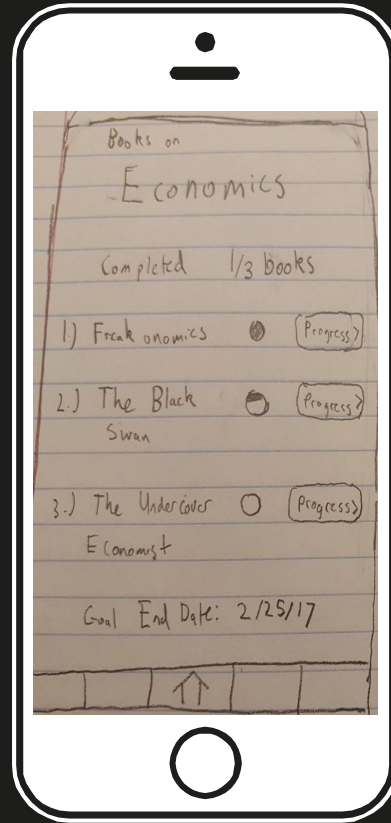 Books on
Economics
Completed 1/3 books
1.) Freakonomics Progress>
2.) The Black Progress>
Swan
3.) The Undercover Progress>
Economist
Goal End Date: 2/25/17